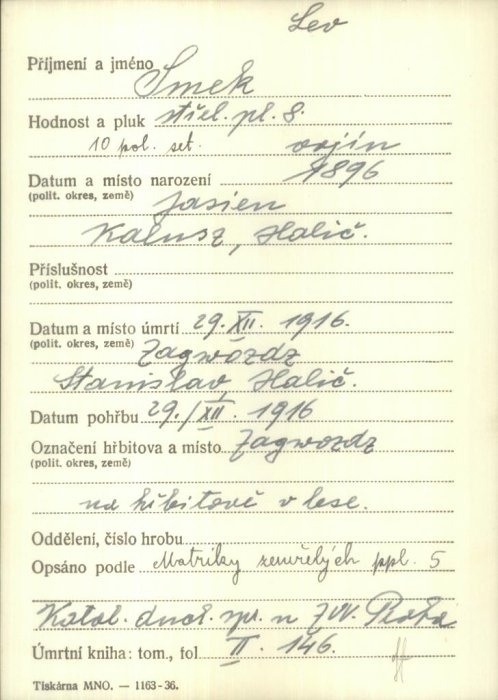 Lev
Příjmení a jméno Smek
Hodnost a pluk střel. pl. 8.
10 pol. set. vojín
Datum a místo narození 1896
(polit. okres, země) Jasien
Kalusz, Halič.
Příslušnost
(polit. okres, země)
Datum a místo úmrtí 29. XII. 1916.
(polit. okres, země) Zagwózdz
Stanislav, Halič.
Datum pohřbu 29./XII. 1916
Označení hřbitova a místo Zagwozdz
(polit. okres, země)
na hřbitově v lese.
Oddělení, číslo hrobu
Opsáno podle Matriky zemřelých ppl. 5
Katol. duch. spr. n Praha
Úmrtní kniha: tom., fol. II. 146.
Tiskárna MNO. — 1163-36.